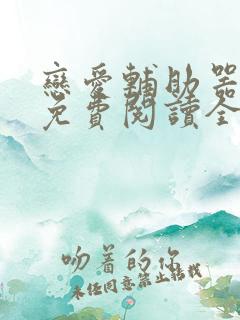 戀愛輔助器
免費閱讀全
吻着的你
未经同意禁止转载